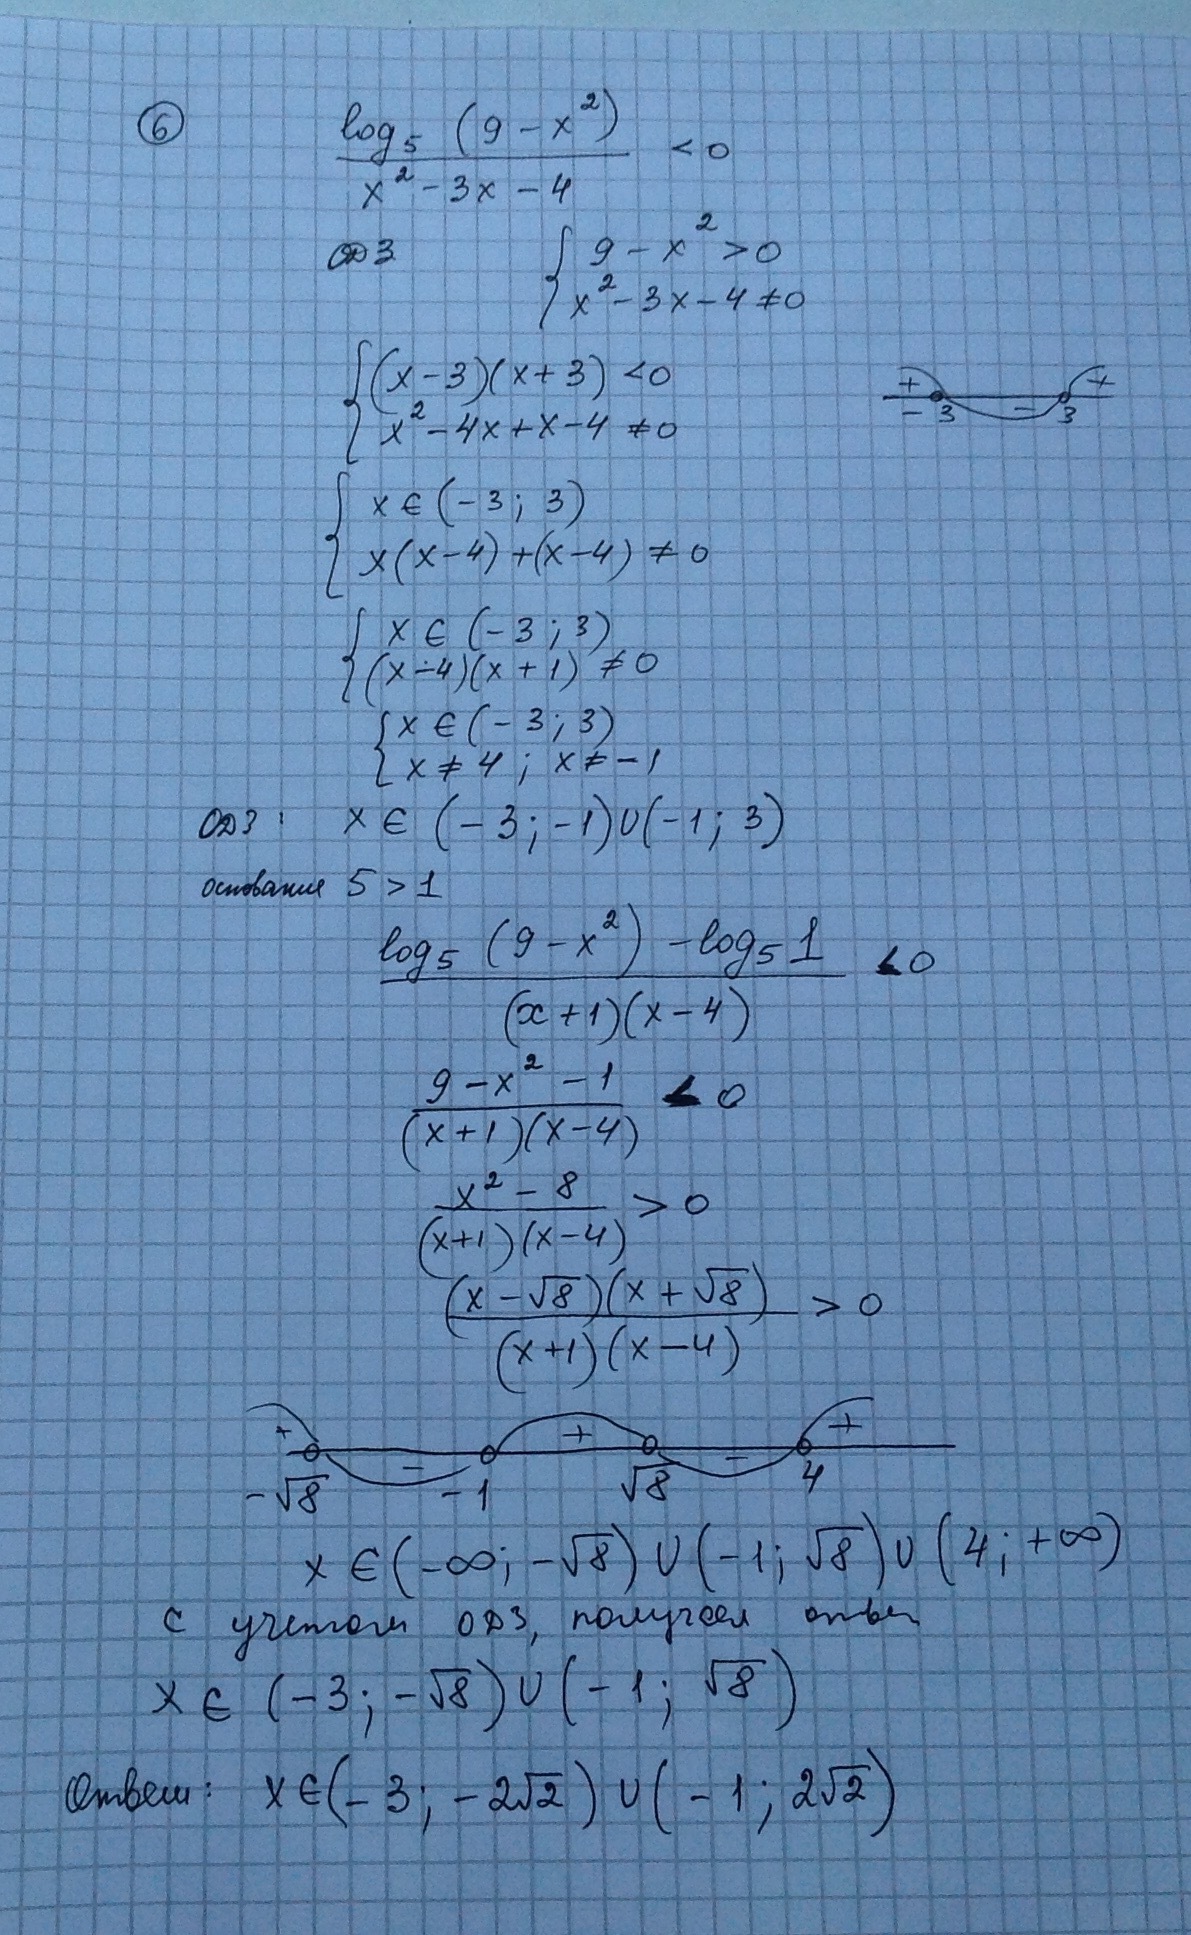 6
log₅ (9 - x²) / x² - 3x - 4 < 0
ОДЗ { 9 - x² > 0
x² - 3x - 4 ≠ 0
{ (x - 3)(x + 3) < 0
x² - 4x + x - 4 ≠ 0
+ - +
-3 3
{ x ∈ (-3; 3)
x(x - 4) + (x - 4) ≠ 0
{ x ∈ (-3; 3)
(x - 4)(x + 1) ≠ 0
{ x ∈ (-3; 3)
x ≠ 4; x ≠ -1
ОДЗ: x ∈ (-3; -1) ∪ (-1; 3)
основание 5 > 1
log₅ (9 - x²) - log₅ 1 / (x + 1)(x - 4) < 0
9 - x² - 1 / (x + 1)(x - 4) < 0
x² - 8 / (x + 1)(x - 4) > 0
(x - √8)(x + √8) / (x + 1)(x - 4) > 0
+ - + - +
-√8 -1 √8 4
x ∈ (-∞; -√8) ∪ (-1; √8) ∪ (4; +∞)
с учетом ОДЗ, получаем ответ
x ∈ (-3; -√8) ∪ (-1; √8)
Ответ: x ∈ (-3; -2√2) ∪ (-1; 2√2)